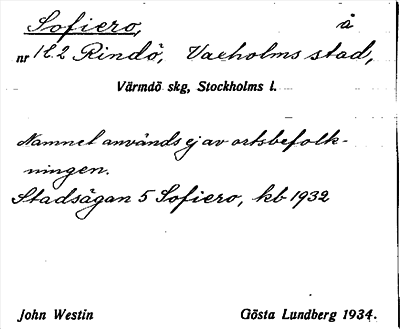 Sofiero, å
nr 1 l. 2 Rindö, Vaxholms stad,
Värmdö skg, Stockholms l.
Namnet används ej av ortsbefolk-
ningen.
Stadsägan 5 Sofiero, kb 1932
John Westin Gösta Lundberg 1934.